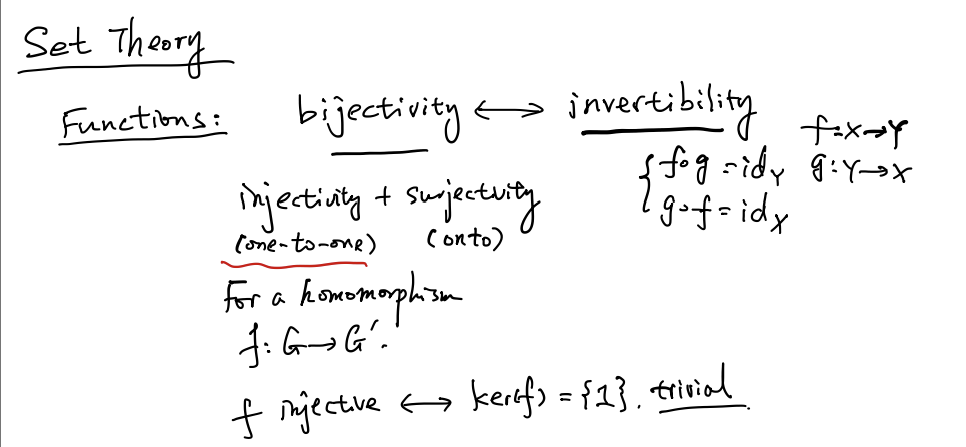 Set Theory
Functions: bijectivity ⟷ invertibility
f: X→Y
{ f∘g = id_Y g: Y→X
injectivity + surjectivity g∘f = id_X
(one-to-one) (onto)
For a homomorphism
f: G→G'.
f injective ⟷ ker(f) = {1}. trivial